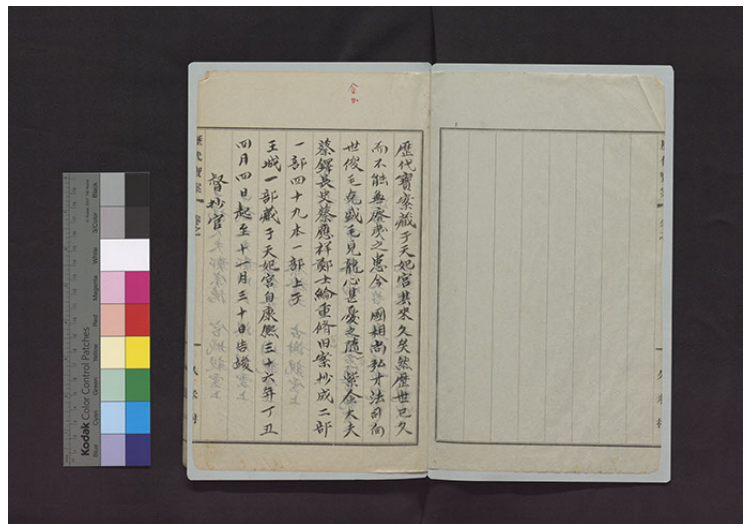 歷代寶案藏于天妃宮其來久矣然歷世已久
而不能無廢曳之患今 國相尚弘才法司向
世俊毛克盛毛見龍心甚憂之隨 紫金大夫
蔡鐸長史蔡應祥鄭士綸重脩旧案抄成二部
一部四十九本一部上于
王城一部藏于天妃宮自康熙三十六年丁丑
四月四日起至十一月三十日告竣
督抄官
歷代寶案
久米村
Kodak Color Control Patches
Blue Cyan Green Yellow Red Magenta White 3/Color Black